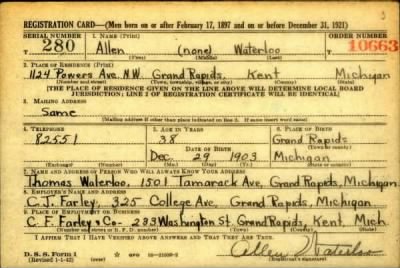 3
REGISTRATION CARD—(Men born on or after February 17, 1897 and on or before December 31, 1921)
SERIAL NUMBER 1. NAME (Print) ORDER NUMBER
280 Allen (none) Waterloo 10663
(First) (Middle) (Last)
2. PLACE OF RESIDENCE (Print)
1124 Powers Ave. N.W. Grand Rapids, Kent Michigan
(Number and street) (Town, township, village, or city) (County) (State)
[THE PLACE OF RESIDENCE GIVEN ON THE LINE ABOVE WILL DETERMINE LOCAL BOARD
JURISDICTION; LINE 2 OF REGISTRATION CERTIFICATE WILL BE IDENTICAL]
3. MAILING ADDRESS
Same
[Mailing address if other than place indicated on line 2. If same insert word same]
4. TELEPHONE 5. AGE IN YEARS 6. PLACE OF BIRTH
82551 38 Grand Rapids
DATE OF BIRTH (Town or county)
Dec. 29 1903 Michigan
(Mo.) (Day) (Yr.) (State or country)
7. NAME AND ADDRESS OF PERSON WHO WILL ALWAYS KNOW YOUR ADDRESS
Thomas Waterloo, 1501 Tamarack Ave, Grand Rapids, Michigan
8. EMPLOYER'S NAME AND ADDRESS
C. J. Farley, 325 College Ave, Grand Rapids, Michigan
9. PLACE OF EMPLOYMENT OR BUSINESS
C. F. Farley & Co- 233 Washington St. Grand Rapids, Kent, Mich.
(Number and street or R. F. D. number) (Town) (County) (State)
I AFFIRM THAT I HAVE VERIFIED ABOVE ANSWERS AND THAT THEY ARE TRUE.
D. S. S. Form 1 GPO
(Revised 1-1-42) (over) Allen Waterloo